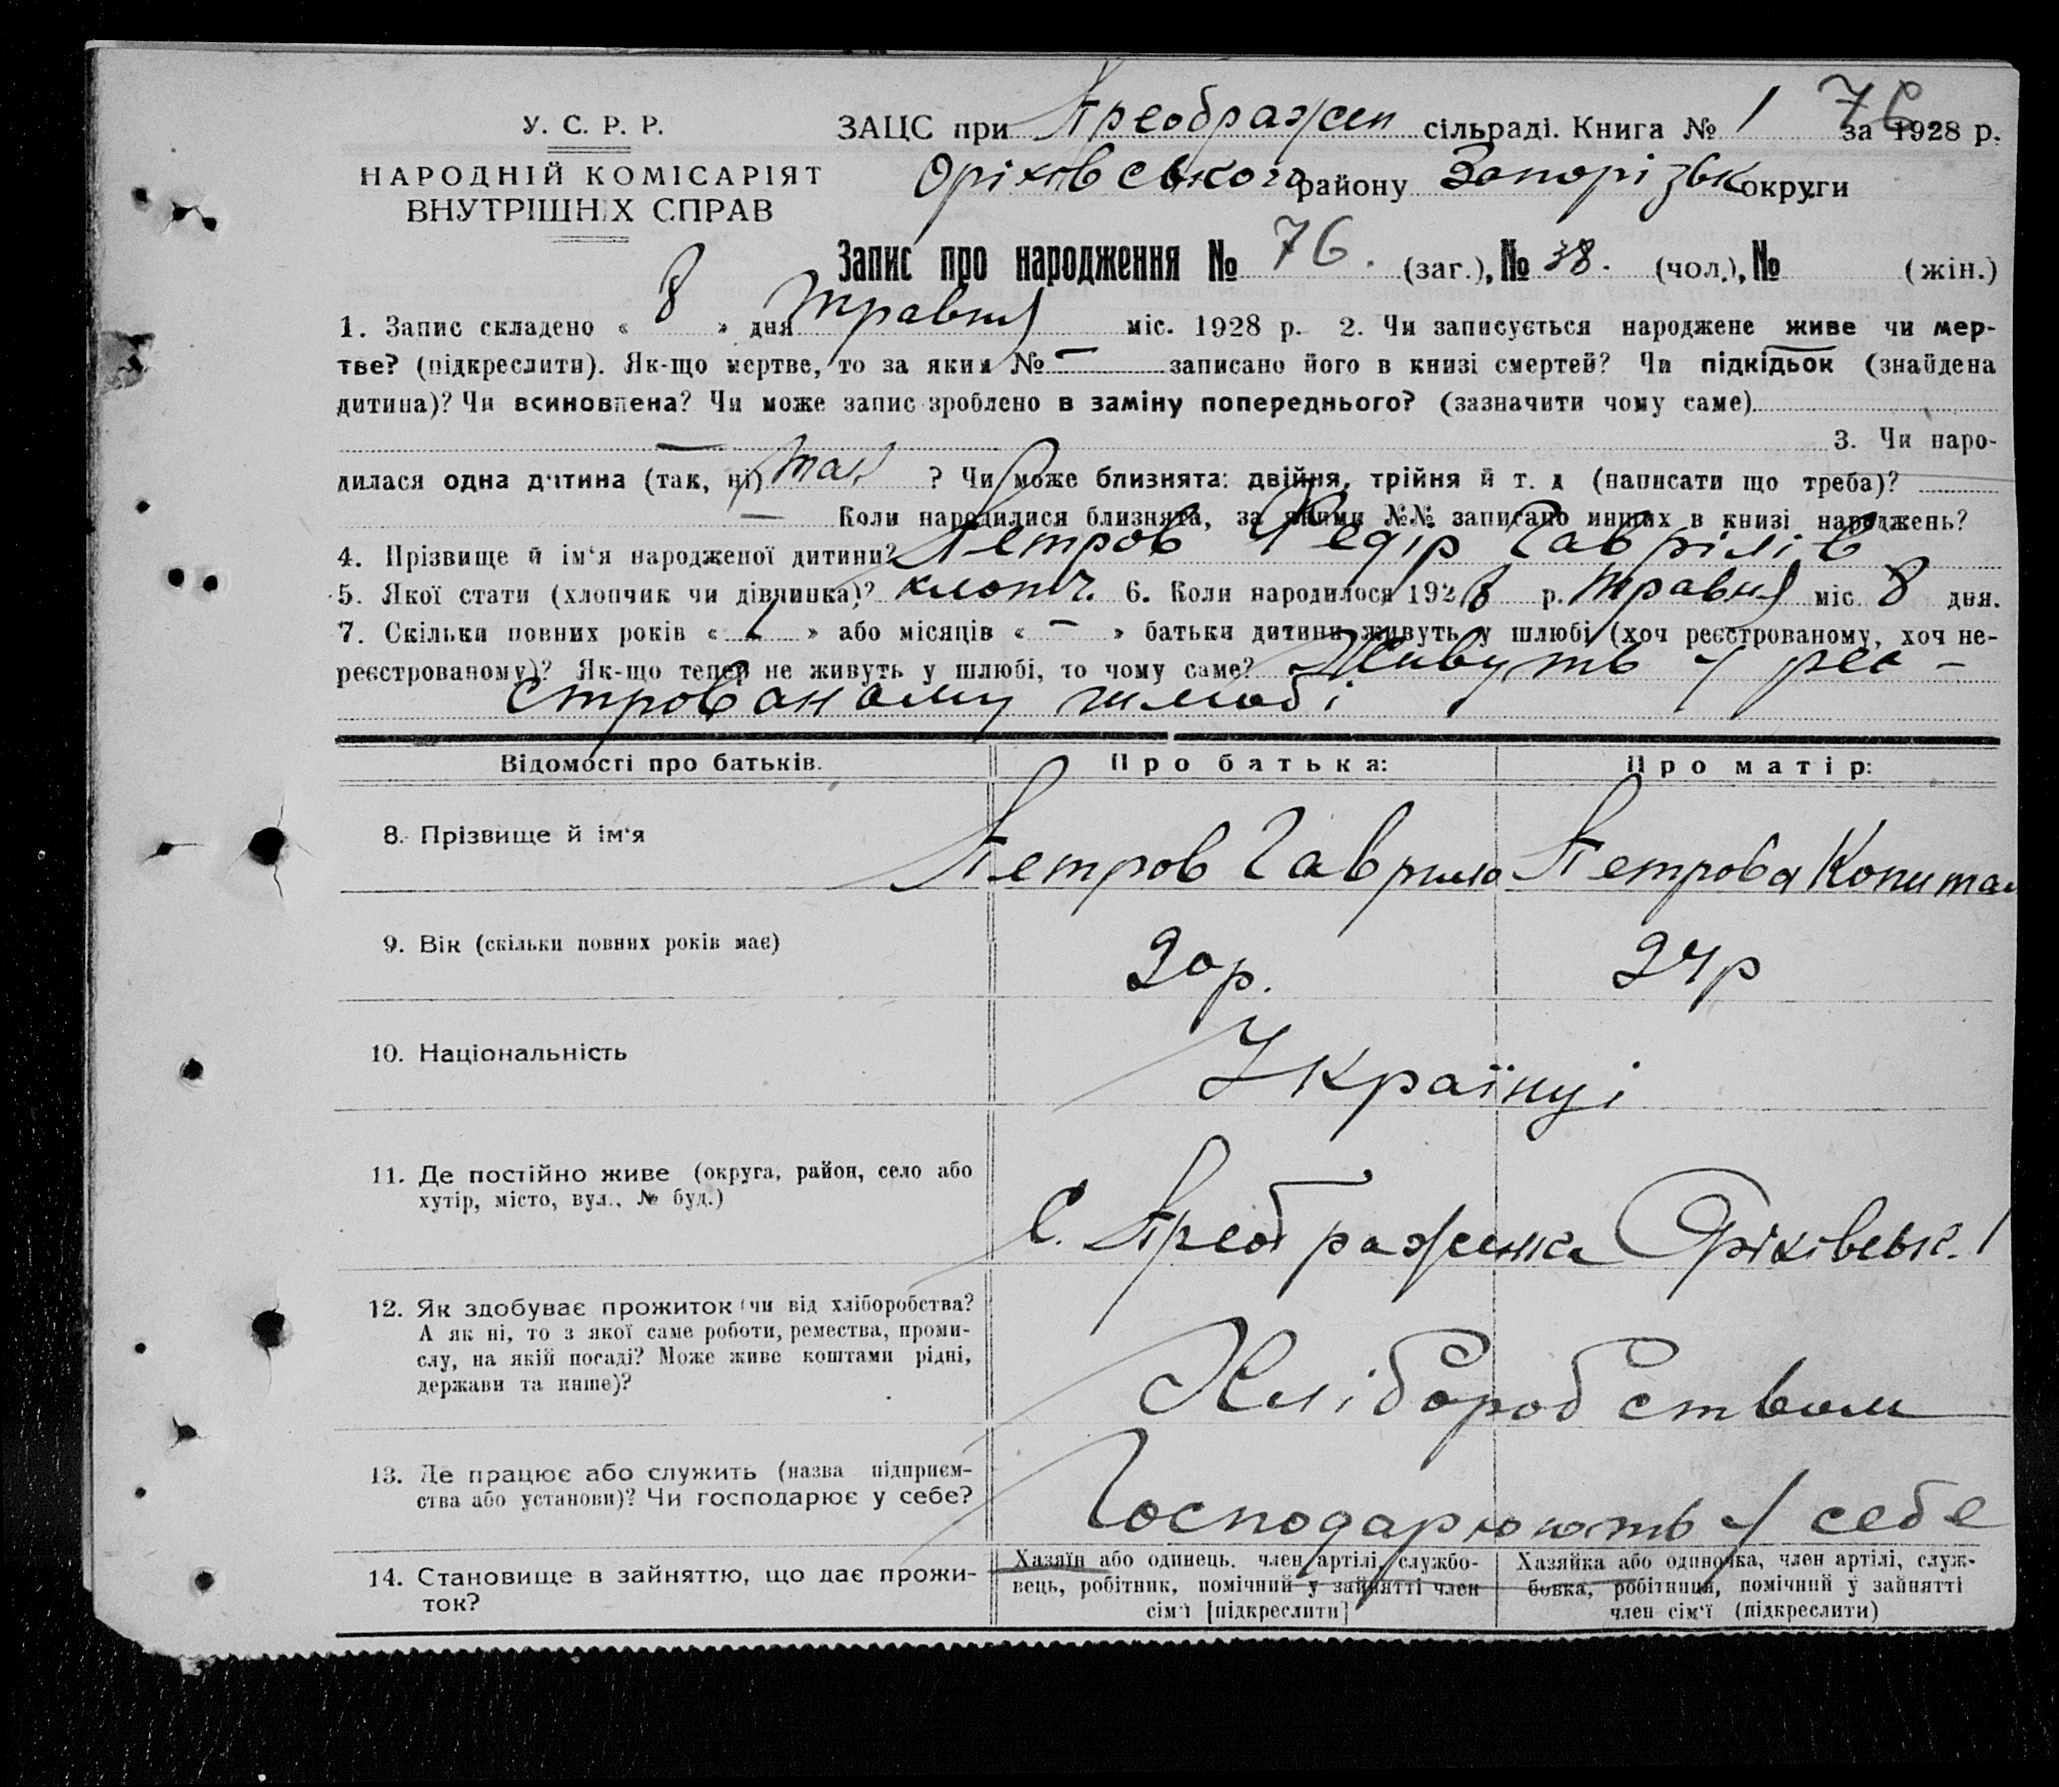 76
У. С. Р. Р.
ЗАЦС при Преображен сільраді. Книга № 1 за 1928 р.
НАРОДНІЙ КОМІСАРІЯТ
ВНУТРІШНІХ СПРАВ
Оріхівського району Запорізьк округи
Запис про народження № 76. (заг.), № 38. (чол.), № (жін.)
1. Запис складено « 8 » дня травня міс. 1928 р. 2. Чи записується народжене живе чи мер-
тве? (підкреслити). Як-що мертве, то за яким № — записано його в книзі смертей? Чи підкідьок (знайдена
дитина)? Чи всиновлена? Чи може запис зроблено в заміну попереднього? (зазначити чому саме)
— 3. Чи наро-
дилася одна дитина (так, ні) так ? Чи може близнята: двійня, трійня й т. д (написати що треба)?
— Коли народилися близнята, за якими №№ записано инших в книзі народжень?
4. Прізвище й ім‘я народженої дитини? Петров Федір Гаврілів
5. Якої стати (хлопчик чи дівчинка)? хлопч. 6. Коли народилося 1928 р. травня міс. 8 дня.
7. Скільки повних років « 1 » або місяців « — » батьки дитини живуть у шлюбі (хоч реєстрованому, хоч не-
реєстрованому)? Як-що тепер не живуть у шлюбі, то чому саме? Живуть у реє-
строваному шлюбі
Відомості про батьків. Про батька: Про матір:
8. Прізвище й ім‘я Петров Гаврило Петрова
9. Вік (скільки повних років має) 20 р. 24 р
10. Національність Українці
11. Де постійно живе (округа, район, село або
хутір, місто, вул., № буд.) С. Преображенка Оріхівськ.
12. Як здобуває прожиток (чи від хліборобства?
А як ні, то з якої саме роботи, ремества, проми-
слу, на якій посаді? Може живе коштами рідні,
держави та инше)? Хліборобством
13. Де працює або служить (назва підприєм-
ства або установи)? Чи господарює у себе? Господарюють у себе
14. Становище в зайняттю, що дає прожи-
ток?
Хазяїн або одинець, член артілі, службо-
вець, робітник, помічний у зайнятті член
сім‘ї [підкреслити]
Хазяйка або одиночка, член артілі, служ-
бовка, робітниця, помічний у зайнятті
член сім‘ї (підкреслити)